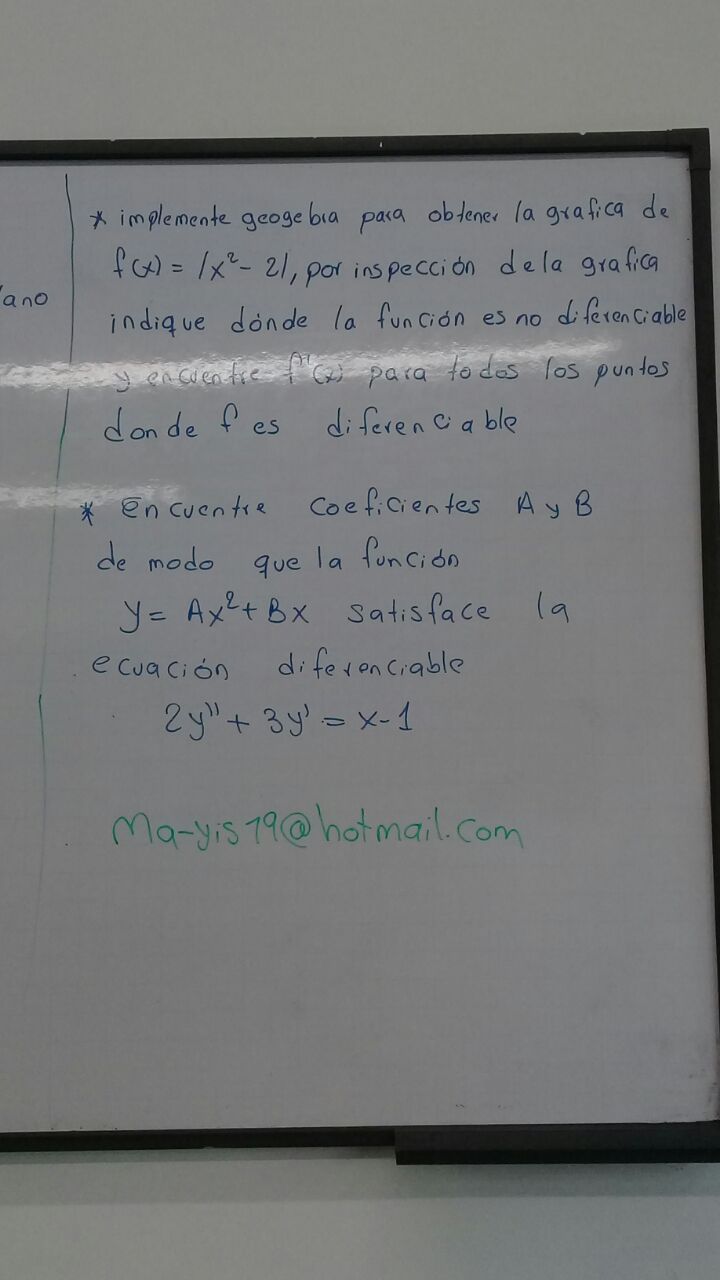 lano
* implemente geogebra para obtener la grafica de
f(x) = |x² - 2|, por inspección de la grafica
indique dónde la función es no diferenciable
y encuentre f'(x) para todos los puntos
donde f es diferenciable
* encuentre coeficientes A y B
de modo que la función
y = Ax² + Bx satisface la
ecuación diferenciable
2y'' + 3y' = x-1
Ma-yis19@hotmail.com